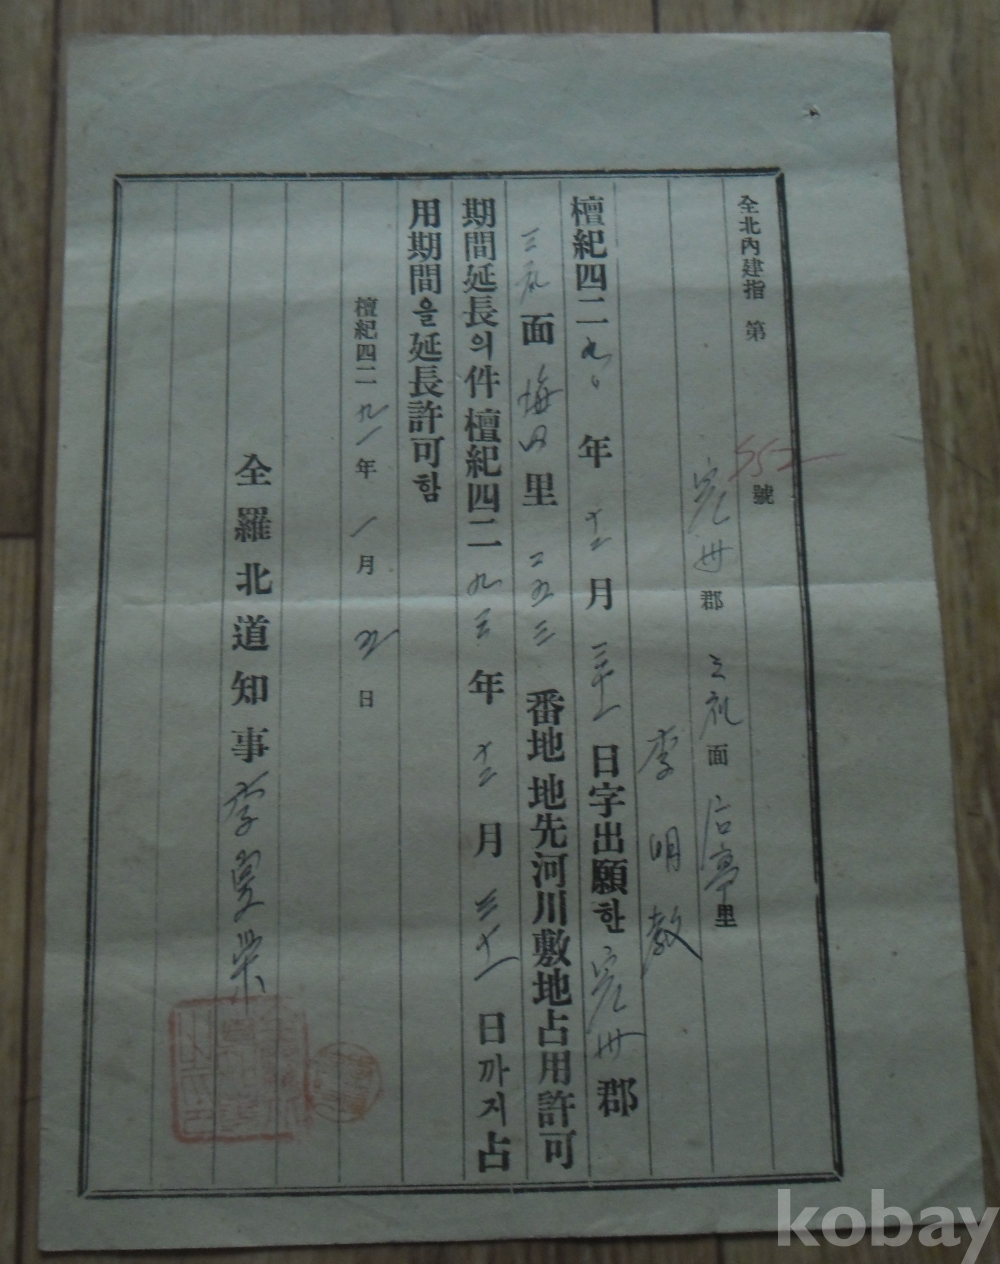 全北內建指 第 552 號
完州 郡 三礼 面 后亭 里
李明敎
檀紀四二九〇年 十二月 三十一日字出願한 完州郡
三礼面 海田里 二五三 番地 地先河川敷地占用許可
期間延長의件 檀紀四二九三年 十二月 三十一日까지占
用期間을延長許可함
檀紀四二九一年 一月 九日
全羅北道知事 李夏榮
kobay